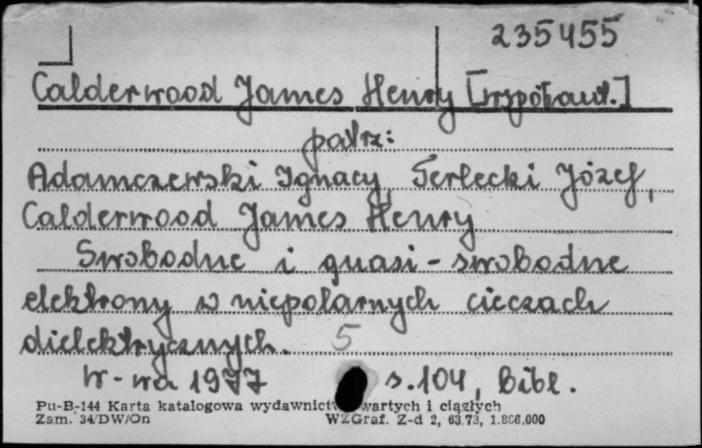 235455
Calderwood James Henry [współaut.]
patrz:
Adamczewski Ignacy, Terlecki Józef,
Calderwood James Henry
Swobodne i quasi-swobodne
elektrony w niepolarnych cieczach
dielektrycznych. 5
W-wa 1977 s.104, Bibl.
Pu-B-144 Karta katalogowa wydawnictw zwartych i ciągłych
Zam. 34/DW/On WZGraf. Z-d 2, 63.73, 1.866.000